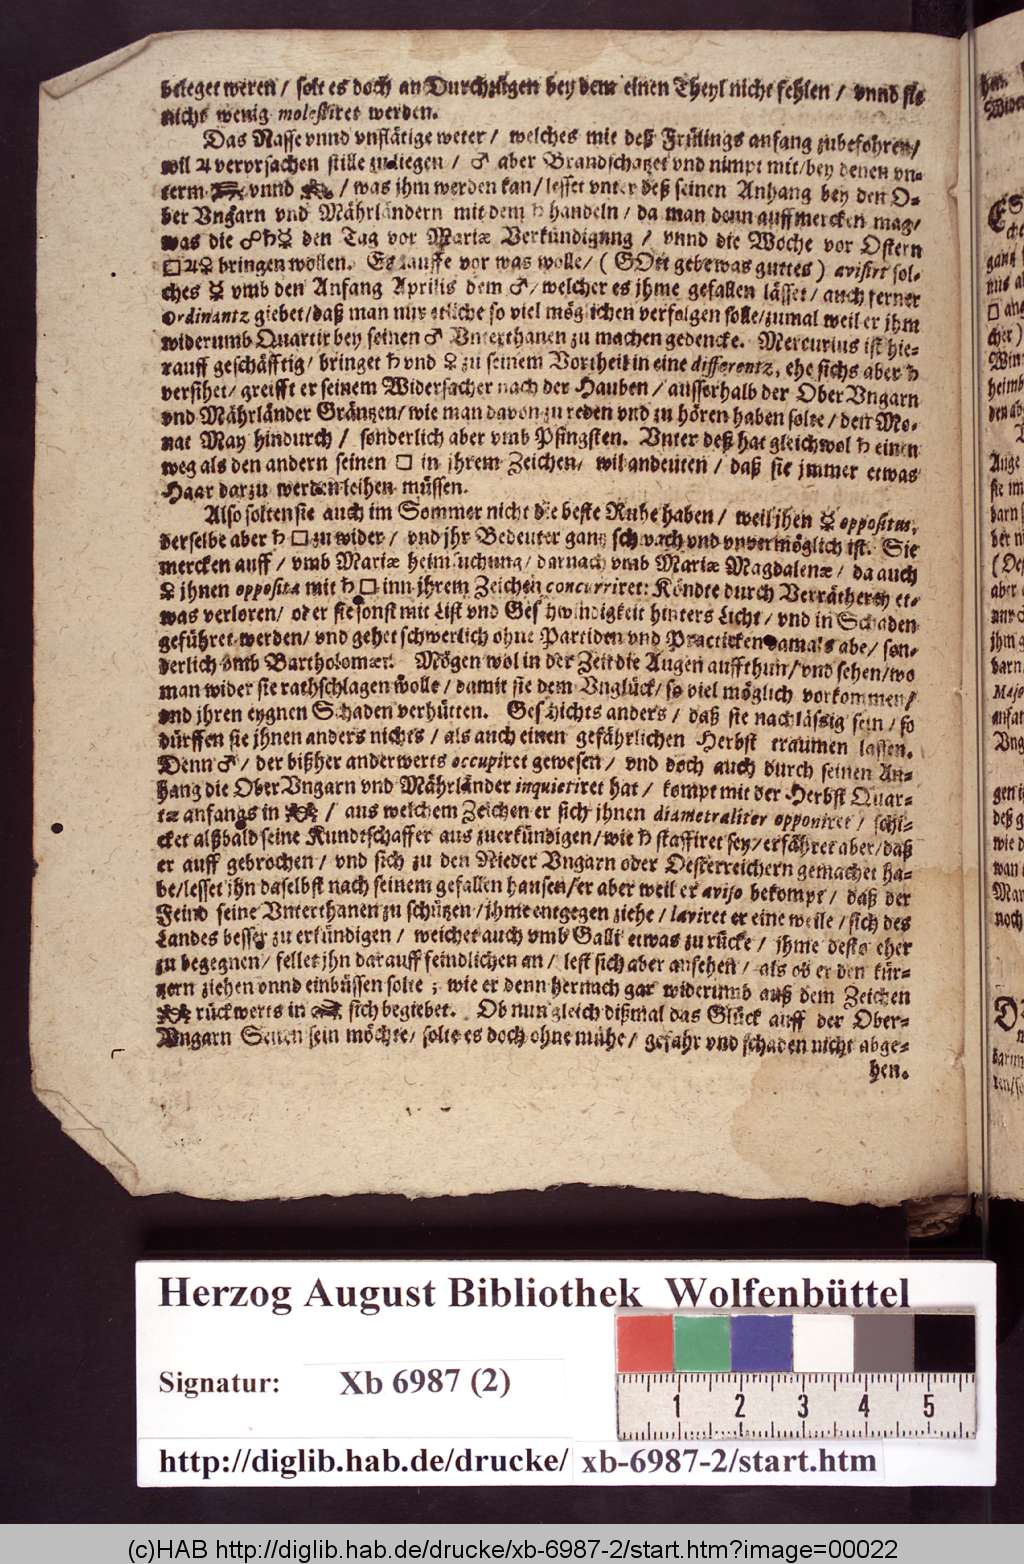 beleget weren / solt es doch an Durchzügen bey dem einen Theyl nicht fehlen / vnnd sie
nicht wenig molestiret werden.
Das Nasse vnnd vnflätige weter / welches mit deß Frülings anfang zubefohren /
wil ♃ vervrsachen stille zu liegen / ♂ aber Brandschatzet vnd nimpt mit / bey denen vn-
term ♉ vnnd ♊ / was ihm werden kan / lesset vnter deß seinen Anhang bey den O-
ber Vngarn vnd Mährländern mit dem ♄ handeln / da man denn auffmercken mag /
was die ☍♄☿ den Tag vor Mariæ Verkündigung / vnnd die Woche vor Ostern
□♃♀ bringen wollen. Es lauffe vor was wolle / ( GOtt gebe was guttes ) avisirt sol-
ches ☿ vmb den Anfang Aprilis dem ♂ / welcher es jhme gefallen lässet / auch ferner
Ordinantz giebet / daß man nur etliche so viel möglichen verfolgen solle / zumal weil er jhm
widerumb Quartir bey seinen ♂ Vnterthanen zu machen gedencke. Mercurius ist hie-
rauff geschäfftig / bringet ♄ vnd ♀ zu seinem Vortheil in eine differentz, ehe sichs aber ♄
versihet / greifft er seinem Widersacher nach der Hauben / ausserhalb der Ober Vngarn
vnd Mährländer Gräntzen / wie man davon zu reden vnd zu hören haben solte / den Mo-
nat May hindurch / sonderlich aber vmb Pfingsten. Vnter deß hat gleichwol ♄ einen
weg als den andern seinen □ in jhrem Zeichen / wil andeuten / daß sie jmmer etwas
Haar darzu werden leihen müssen.
Also solten sie auch im Sommer nicht die beste Ruhe haben / weil jhen ☿ oppositus,
derselbe aber ♄ □ zu wider / vnd jhr Bedeuter gantz schwach vnd vnvermöglich ist. Sie
mercken auff / vmb Mariæ heimsuchung / darnach vmb Mariæ Magdalenæ / da auch
♀ jhnen opposita mit ♄ □ inn jhrem Zeichen concurriret: Köndte durch Verrätherey et-
was verloren / oder sie sonst mit List vnd Geschwindigkeit hinters Licht / vnd in Schaden
geführet werden / vnd gehet schwerlich ohne Partiden vnd Practicken damals abe / son-
derlich vmb Bartholomæi. Mögen wol in der Zeit die Augen auffthun / vnd sehen / wo
man wider sie rathschlagen wolle / damit sie dem Vnglück / so viel möglich vorkommen /
vnd jhren eygnen Schaden verhütten. Geschichts anders / daß sie nachlässig sein / so
dürffen sie jhnen anders nichts / als auch einen gefährlichen Herbst traumen lassen.
Denn ♂ / der bißher anderwerts occupiret gewesen / vnd doch auch durch seinen An-
hang die Ober Vngarn vnd Mährländer inquietiret hat / kompt mit der Herbst Quar-
tæ anfangs in ♊ / aus welchem Zeichen er sich jhnen diametraliter opponiret / schi-
cket alßbald seine Kundtschaffer aus zuerkündigen / wie ♄ staffiret sey / erfähret aber / daß
er auff gebrochen / vnd sich zu den Nieder Vngarn oder Oesterreichern gemachet ha-
be / lesset jhn daselbst nach seinem gefallen hausen / er aber weil er aviso bekompt / daß der
Feind seine Vnterthanen zu schützen / jhme entgegen ziehe / laviret er eine weile / sich des
Landes besser zu erkündigen / weichet auch vmb Galli etwas zu rücke / jhme desto eher
zu begegnen / fellet jhn darauff feindlichen an / lest sich aber ansehen / als ob er den kür-
zern ziehen vnnd einbüssen solte ; wie er denn hernach gar widerumb auß dem Zeichen
♊ rückwerts in ♉ sich begiebet. Ob nun gleich dißmal das Glück auff der Ober-
Vngarn Seiten sein möchte / solte es doch ohne mühe / gefahr vnd schaden nicht abge-
hen.
Herzog August Bibliothek Wolfenbüttel
Signatur: Xb 6987 (2)
1 2 3 4 5
http://diglib.hab.de/drucke/ xb-6987-2/start.htm
(c)HAB http://diglib.hab.de/drucke/xb-6987-2/start.htm?image=00022